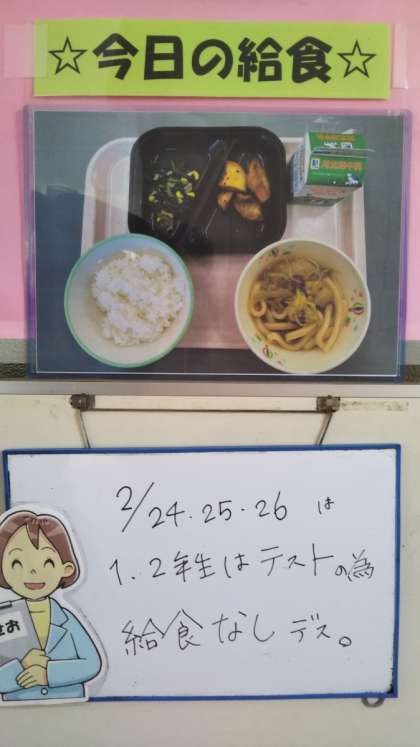 ☆今日の給食☆
2/24.25.26 は
1.2年生はテストの為
給食なしデス。